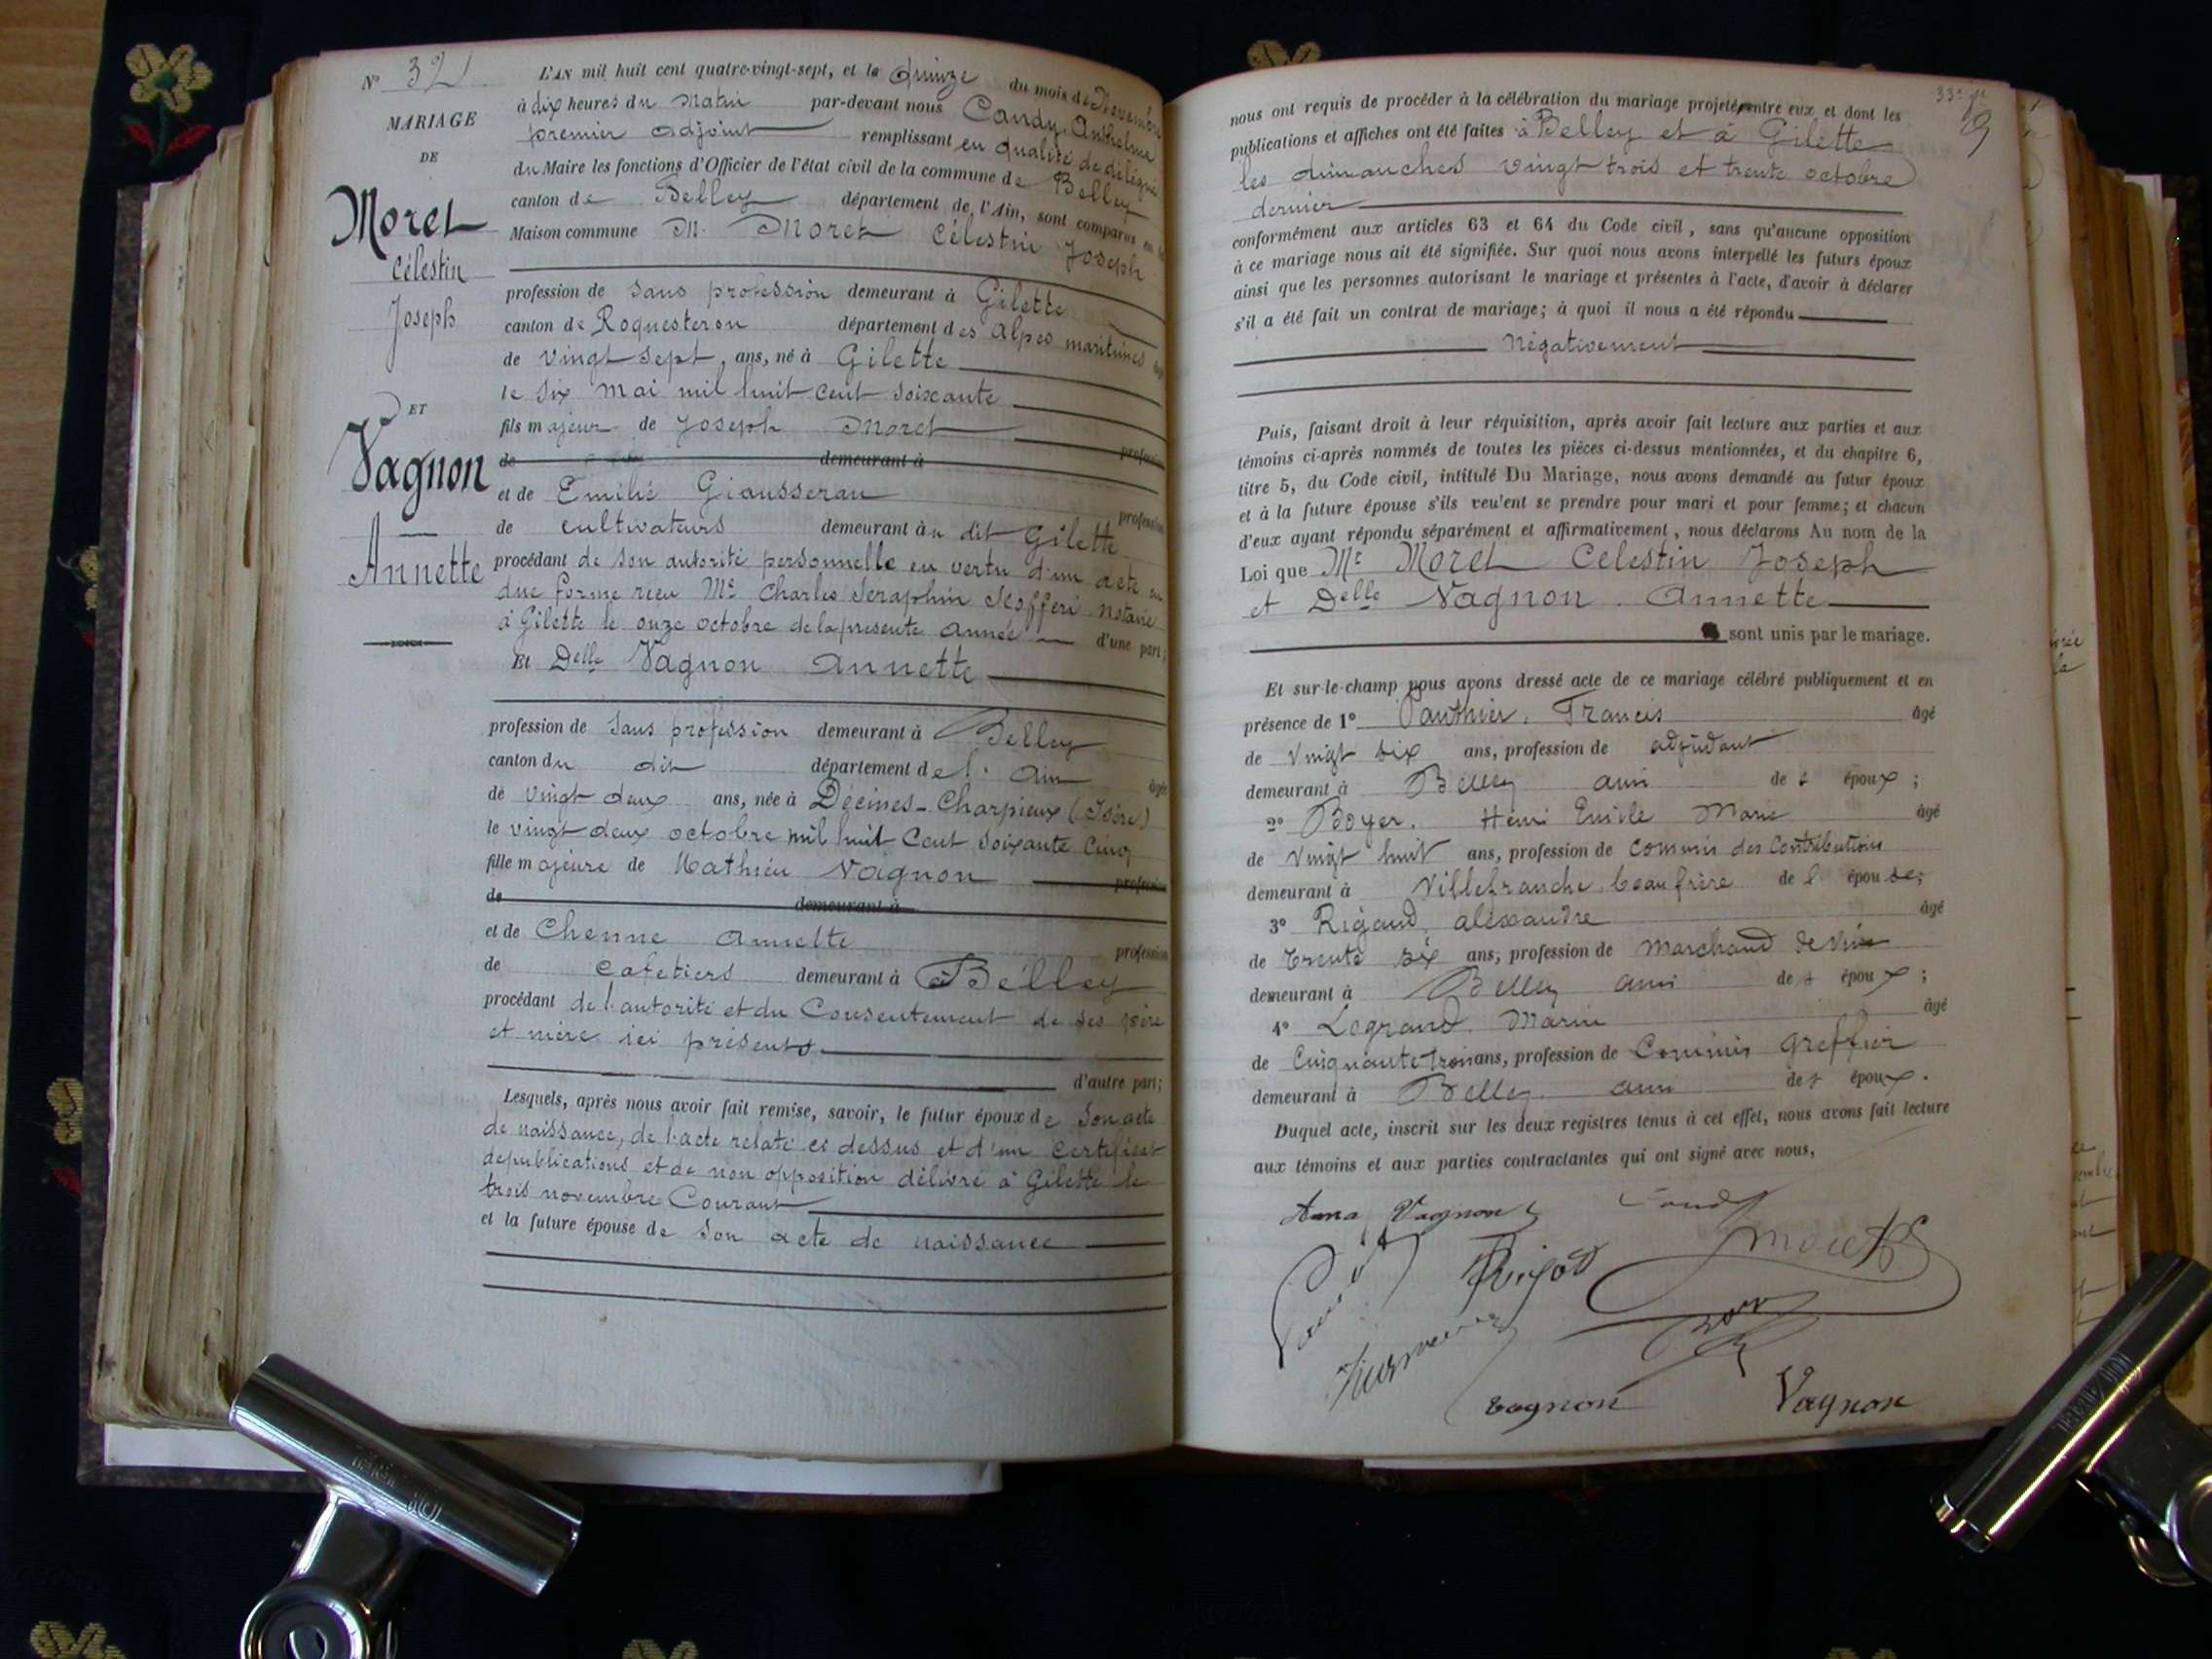 N° 32
MARIAGE
DE
Moret
Célestin
Joseph
ET
Vagnon
Annette
L'AN mil huit cent quatre-vingt-sept, et le Quinze du mois de Novembre
à dix heures du Matin par-devant nous Candy Anthelme
premier adjoint remplissant en qualité de délégué
du Maire les fonctions d'Officier de l'état civil de la commune de Belley
canton de Belley département de l'Ain, sont comparus en la
Maison commune M. Moret Célestin Joseph
profession de sans profession demeurant à Gilette
canton de Roquesteron département des Alpes maritimes âgé
de vingt sept, ans, né à Gilette
le six mai mil huit cent soixante
fils majeur de Joseph Moret profession
de demeurant à
et de Emilie Giausseran profession
de cultivateurs demeurant au dit Gilette
procédant de son autorité personnelle en vertu d'un acte en
due forme reçu Me Charles Seraphin notaire
à Gilette le onze octobre de la presente année d'une part;
Et Delle Vagnon Annette
profession de sans profession demeurant à Belley
canton du dit département de l'Ain âgée
de vingt deux ans, née à Décines-Charpieux (Isère)
le vingt deux octobre mil huit cent soixante cinq
fille majeure de Mathieu Vagnon profession
de demeurant à
et de Chenne Annette profession
de cafetiers demeurant à Belley
procédant de l'autorité et du Consentement de ses père
et mère ici présents
d'autre part;
Lesquels, après nous avoir fait remise, savoir, le futur époux de Son acte
de naissance, de l'acte relaté ci dessus et d'un Certificat
de publications et de non opposition délivré à Gilette le
trois novembre Courant
et la future épouse de Son acte de naissance
33e
nous ont requis de procéder à la célébration du mariage projeté entre eux et dont les
publications et affiches ont été faites à Belley et à Gilette
les dimanches vingt trois et trente octobre
dernier
conformément aux articles 63 et 64 du Code civil, sans qu'aucune opposition
à ce mariage nous ait été signifiée. Sur quoi nous avons interpellé les futurs époux
ainsi que les personnes autorisant le mariage et présentes à l'acte, d'avoir à déclarer
s'il a été fait un contrat de mariage; à quoi il nous a été répondu
Négativement
Puis, faisant droit à leur réquisition, après avoir fait lecture aux parties et aux
témoins ci-après nommés de toutes les pièces ci-dessus mentionnées, et du chapitre 6,
titre 5, du Code civil, intitulé Du Mariage, nous avons demandé au futur époux
et à la future épouse s'ils veu'ent se prendre pour mari et pour femme; et chacun
d'eux ayant répondu séparément et affirmativement, nous déclarons Au nom de la
Loi que Mr Moret Celestin Joseph
et Delle Vagnon. Annette
sont unis par le mariage.
Et sur-le-champ nous avons dressé acte de ce mariage célébré publiquement et en
présence de 1° Pauthier, Francis âgé
de Vingt six ans, profession de adjudant
demeurant à Belley ami de s époux;
2° Boyer. Henri Emile Marie âgé
de Vingt huit ans, profession de commis des Contributions
demeurant à Villefranche beau frère de l' épouse;
3° Rigaud, alexandre âgé
de trente six ans, profession de marchand de vin
demeurant à Belley ami de s époux;
4° Legrand Marin âgé
de Cinquante trois ans, profession de Commis Greffier
demeurant à Belley ami de s époux.
Duquel acte, inscrit sur les deux registres tenus à cet effet, nous avons fait lecture
aux témoins et aux parties contractantes qui ont signé avec nous,
Anna Vagnon Candy
Moret
vagnon Vagnon